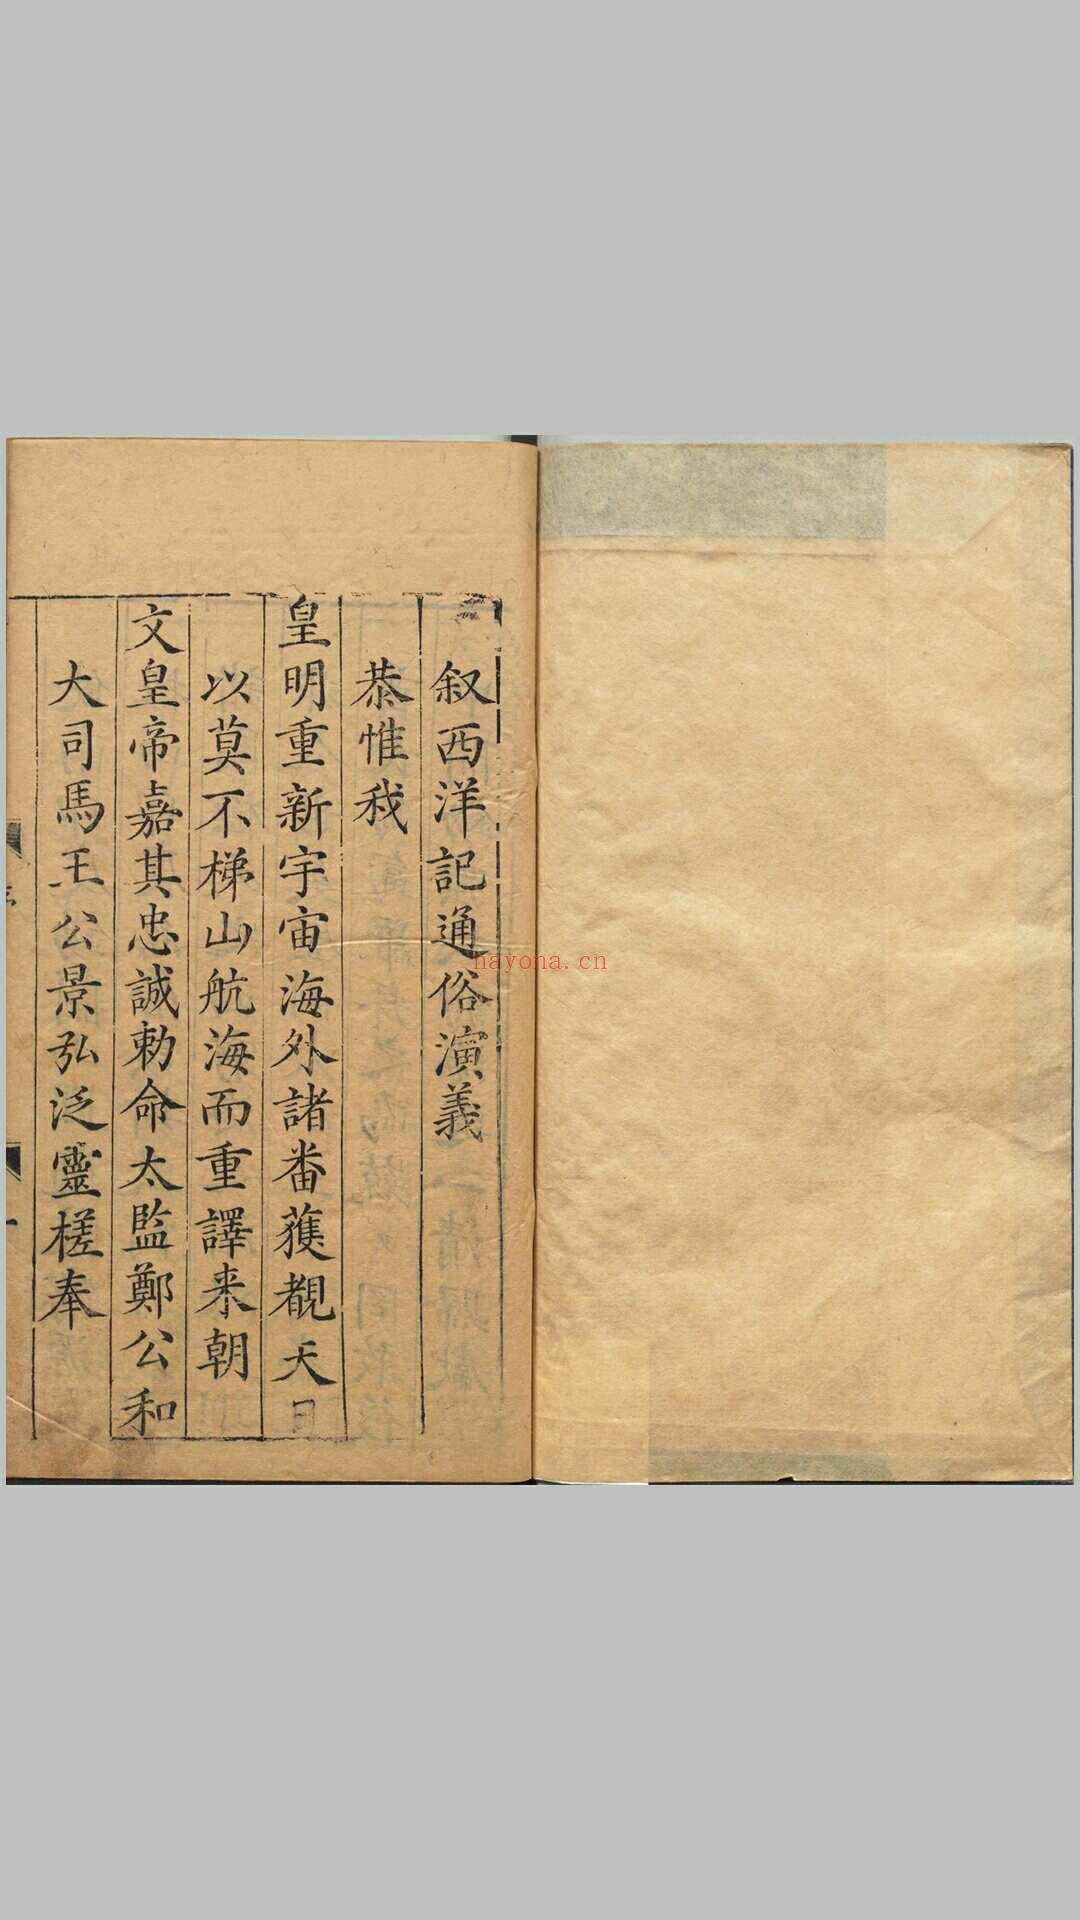 叙西洋記通俗演義
恭惟我
皇明重新宇宙海外諸番獲覩天日
以莫不梯山航海而重譯来朝
文皇帝嘉其忠誠勅命太監鄭公和
大司馬王公景弘泛靈槎奉
hayona.cn